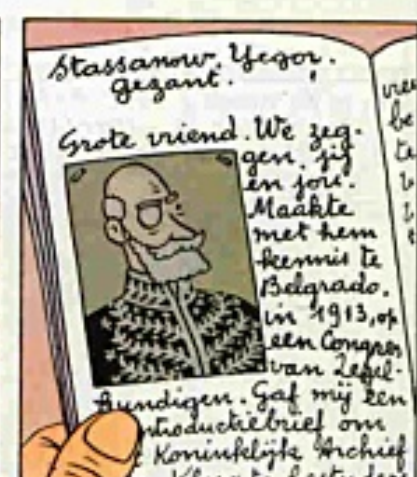 Stassanow, Yegor.
gezant.
Grote vriend. We zeg-
gen, jij
en jou.
Maakte
met hem
kennis te
Belgrado,
in 1913, op
een Congres
van Zegel-
kundigen. Gaf mij een
introductiebrief om
Koninklijk Archief
te